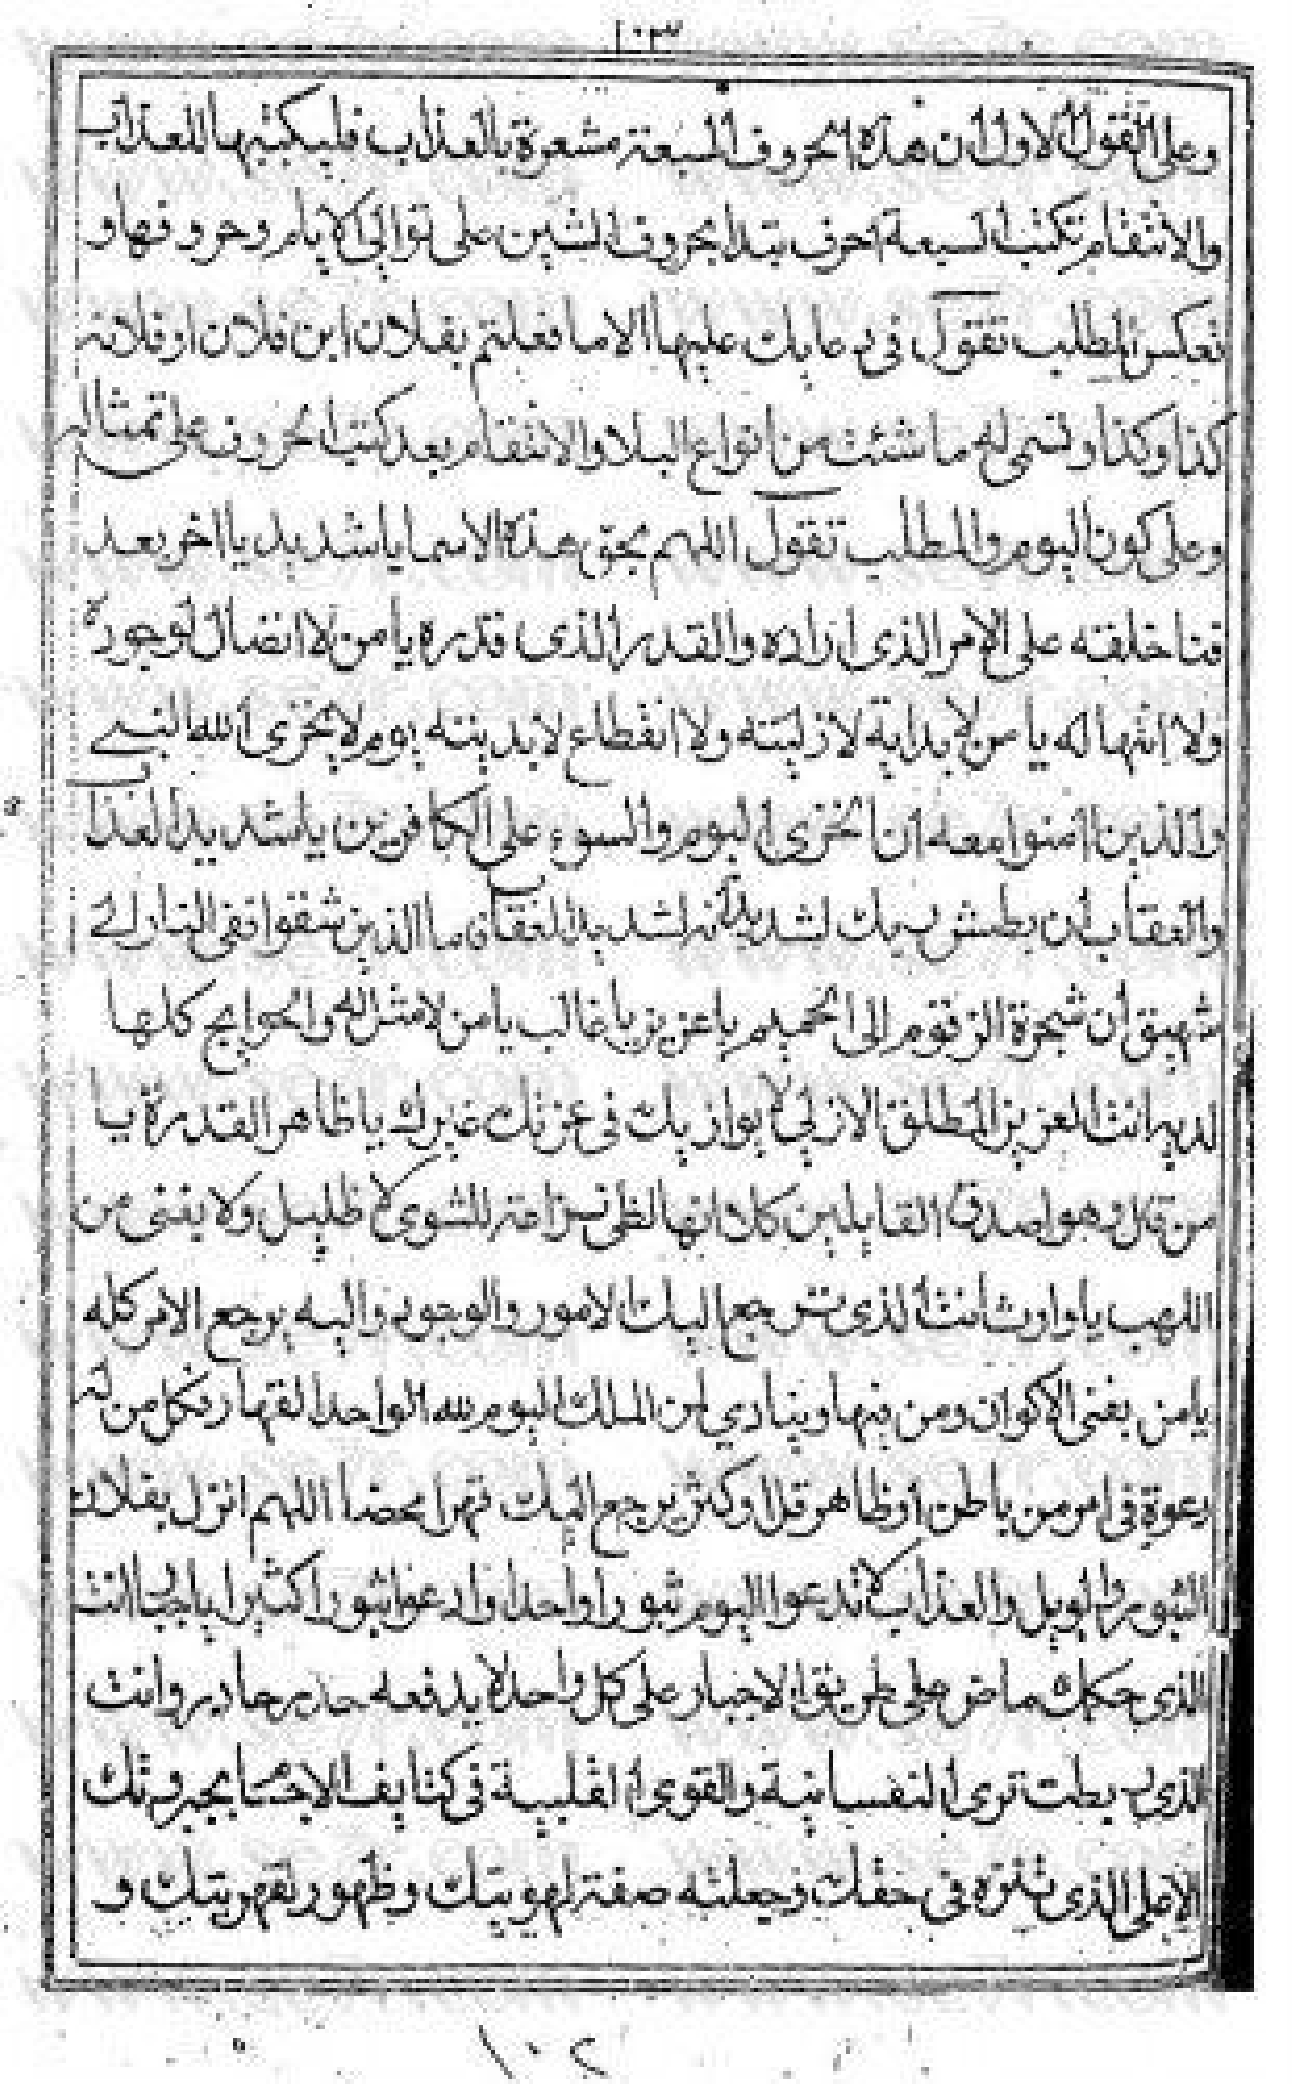 ١٠٣
وعلى القول الاول ان هذه الحروف السبعة مشعرة بالعذاب فليكتبها للعذاب
والانتقام تكتب السبعة احرف بتدا بحروف الشين على توالى الايام وحروفها و
تعكس المطلب تقول فى دعايك عليها الا ما فعلتم بفلان ابن فلان او فلانه
كذا وكذا وتسمى له ما شئت من انواع البلا والانتقام بعد كتب الحروف على تمثاله
وعلى كون اليوم والمطلب تقول اللهم بحق هذه الاسما يا شديد يا اخر بعد
فنا خلقه على الامر الذى اراده والقدر الذى قدره يا من لا انفصال لوجوده
ولا انتها له يا من لا بداية لازليته ولا انقطاع لابديته يوم لا يخزى الله النبى
والذين امنوا معه ان الخزى اليوم والسوء على الكافرين يا شديد العذاب
والعقاب ان بطش ربك لشديد انه لشديد العقاب فاما الذين شقوا ففى النار لهم
شهيق ان شجرة الزقوم الى الحميم يا عزيز يا غالب يا من لا مثل له والحوايج كلها
لديه انت العزيز المطلق الازلى لا يوازيك فى عزتك غيرك يا ظاهر القدرة يا
من قال وهو اصدق القايلين كلا انها لظى نزاعة للشوى لا ظليل ولا يغنى من
اللهب يا وارث انت الذى ترجع اليك الامور والوجود واليه يرجع الامر كله
يا من يفنى الاكوان ومن فيها وينادي لمن الملك اليوم لله الواحد القهار فكل من له
دعوة فى امر من باطن او ظاهر قل او كثر يرجع اليك قهرا محضا اللهم انزل بفلان
الثبور والويل والعذاب لا تدعوا اليوم ثبورا واحدا وادعوا ثبورا كثيرا يا انت
الذى حكمك ماض على طريق الاجبار على كل واحد لا يدفعه حذر حاذر وانت
الذى ربطت ترى النفسانية والقوى القلبية فى كتايف الاجسا بجبروتك
الاعلى الذى فى حقك وجعلته صفة لهويتك وظهور لقهريتك و
١٠٢